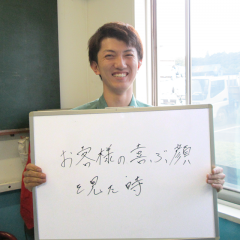 お客様の喜ぶ顔
を見た時